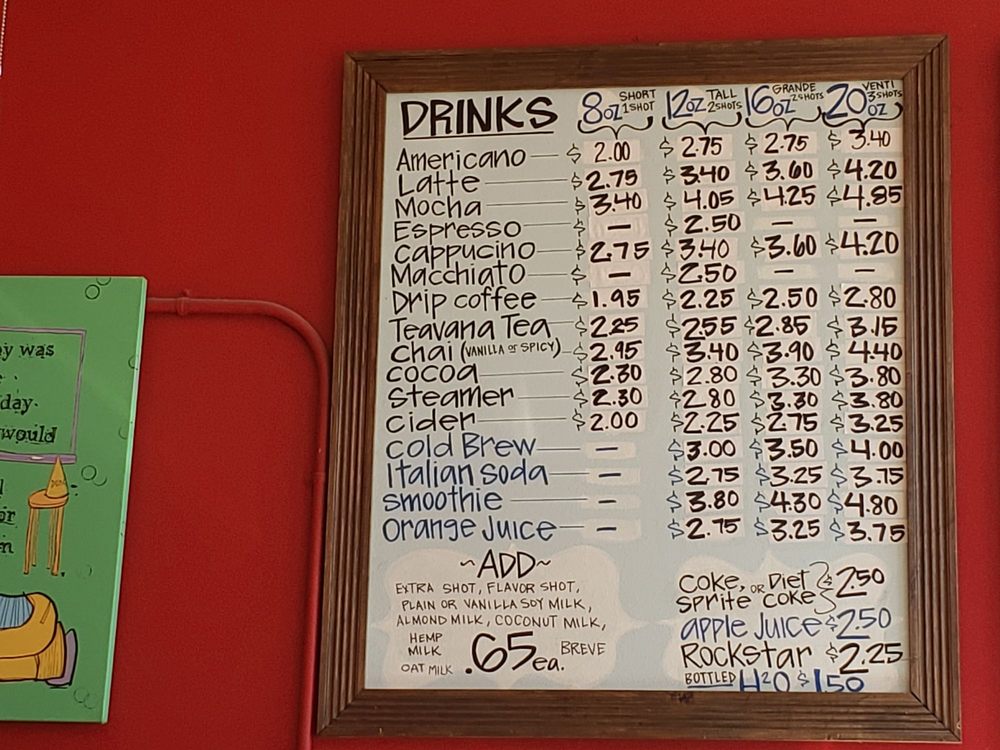 DRINKS 8oz SHORT 1 SHOT 12oz TALL 2 SHOTS 16oz GRANDE 2 SHOTS 20oz VENTI 3 SHOTS
Americano $2.00 $2.75 $2.75 $3.40
Latte $2.75 $3.40 $3.60 $4.20
Mocha $3.40 $4.05 $4.25 $4.85
Espresso $ — $2.50 $ — $ —
Cappucino $2.75 $3.40 $3.60 $4.20
Macchiato $ — $2.50 — —
Drip coffee $1.95 $2.25 $2.50 $2.80
Teavana Tea $2.25 $2.55 $2.85 $3.15
Chai (VANILLA or SPICY) $2.95 $3.40 $3.90 $4.40
cocoa $2.30 $2.80 $3.30 $3.80
Steamer $2.30 $2.80 $3.30 $3.80
cider $2.00 $2.25 $2.75 $3.25
cold Brew — $3.00 $3.50 $4.00
Italian soda — $2.75 $3.25 $3.75
smoothie — $3.80 $4.30 $4.80
orange Juice — $2.75 $3.25 $3.75
~ADD~
EXTRA SHOT, FLAVOR SHOT,
PLAIN OR VANILLA SOY MILK,
ALMOND MILK, COCONUT MILK,
HEMP MILK
OAT MILK .65 ea. BREVE
Coke, or Diet
Sprite coke $2.50
apple Juice $2.50
Rockstar $2.25
BOTTLED H2O $1.50
ay was
day.
would
or